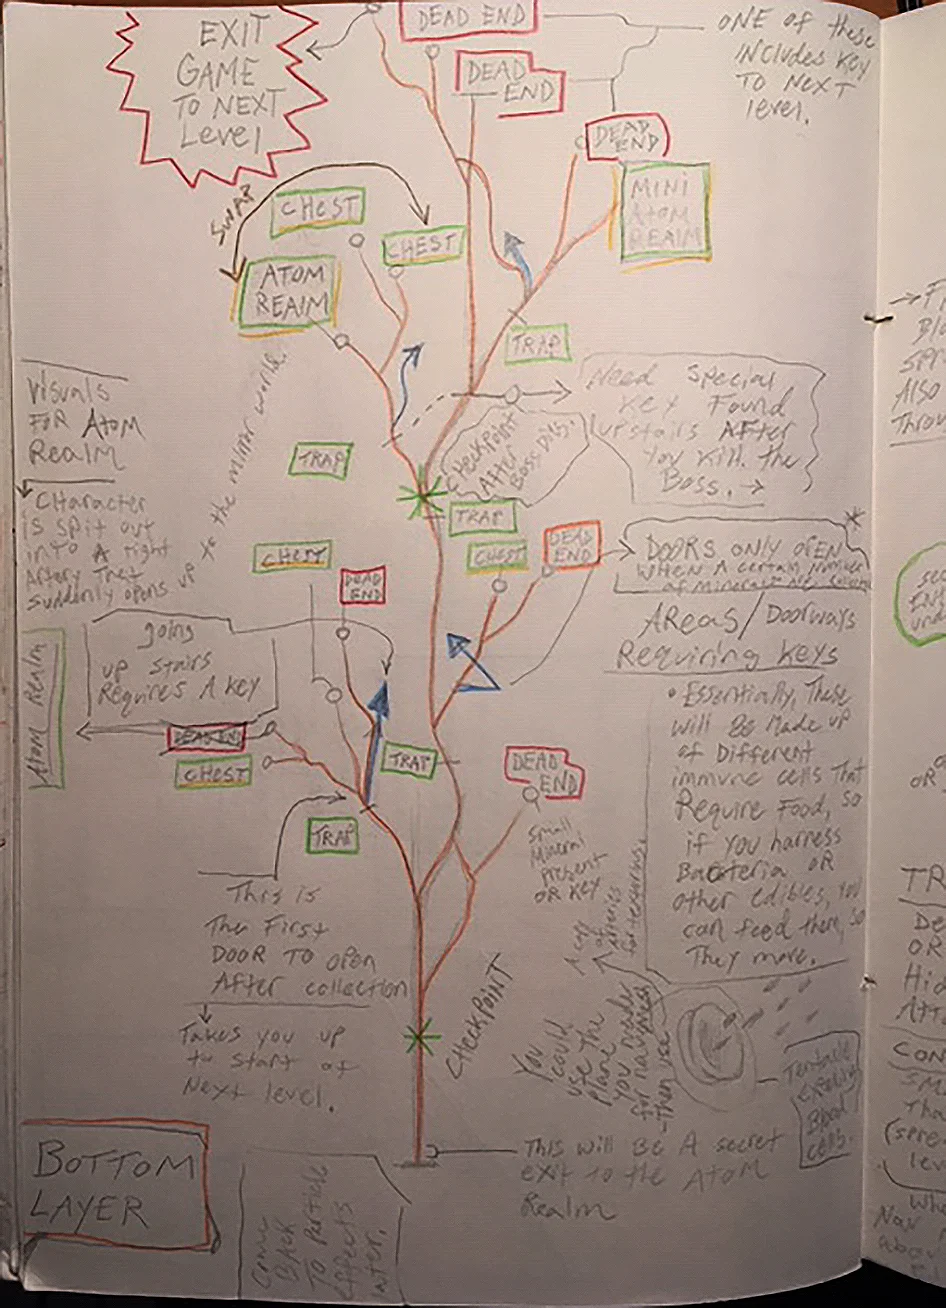 EXIT
GAME
TO NEXT
Level
DEAD END
DEAD
END
DEAD
END
ONE OF these
INCLUDES KEY
TO NEXT
level.
MINI
ATOM
REALM
SWAP
CHEST
CHEST
ATOM
REALM
TRAP
Need Special
Key Found
upstairs AFTER
You Kill the
Boss. →
CHECKPOINT
After
Boss
Visuals
FOR Atom
Realm
CHaracter
is spit out
into A right
Artery That
suddenly opens up
to the mirror world.
TRAP
TRAP
CHEST
DEAD
END
CHEST
DEAD
END
DOORS ONLY OPEN
WHEN A certain Number
of Minerals
AReas/Doorways
Requiring Keys
• Essentially, These
will Be Made up
of Different
immune cells That
Require Food, so
if you harness
Bacteria OR
other edibles, you
can feed them, so
They move.
going
up stairs
Requires A Key
Atom Realm
DEAD END
CHEST
TRAP
TRAP
DEAD
END
small
Mineral
present
OR Key
This is
The First
DOOR TO OPEN
After collection
Takes you up
to start of
Next level.
CHECKPOINT
You
could
use The
plane
you made
for
Then use
of
arteries
for textures.
Tentacle
Blood
cells.
This will Be A secret
exit to the Atom
Realm
BOTTOM
LAYER
Come
Back
To Particle
effects
later.